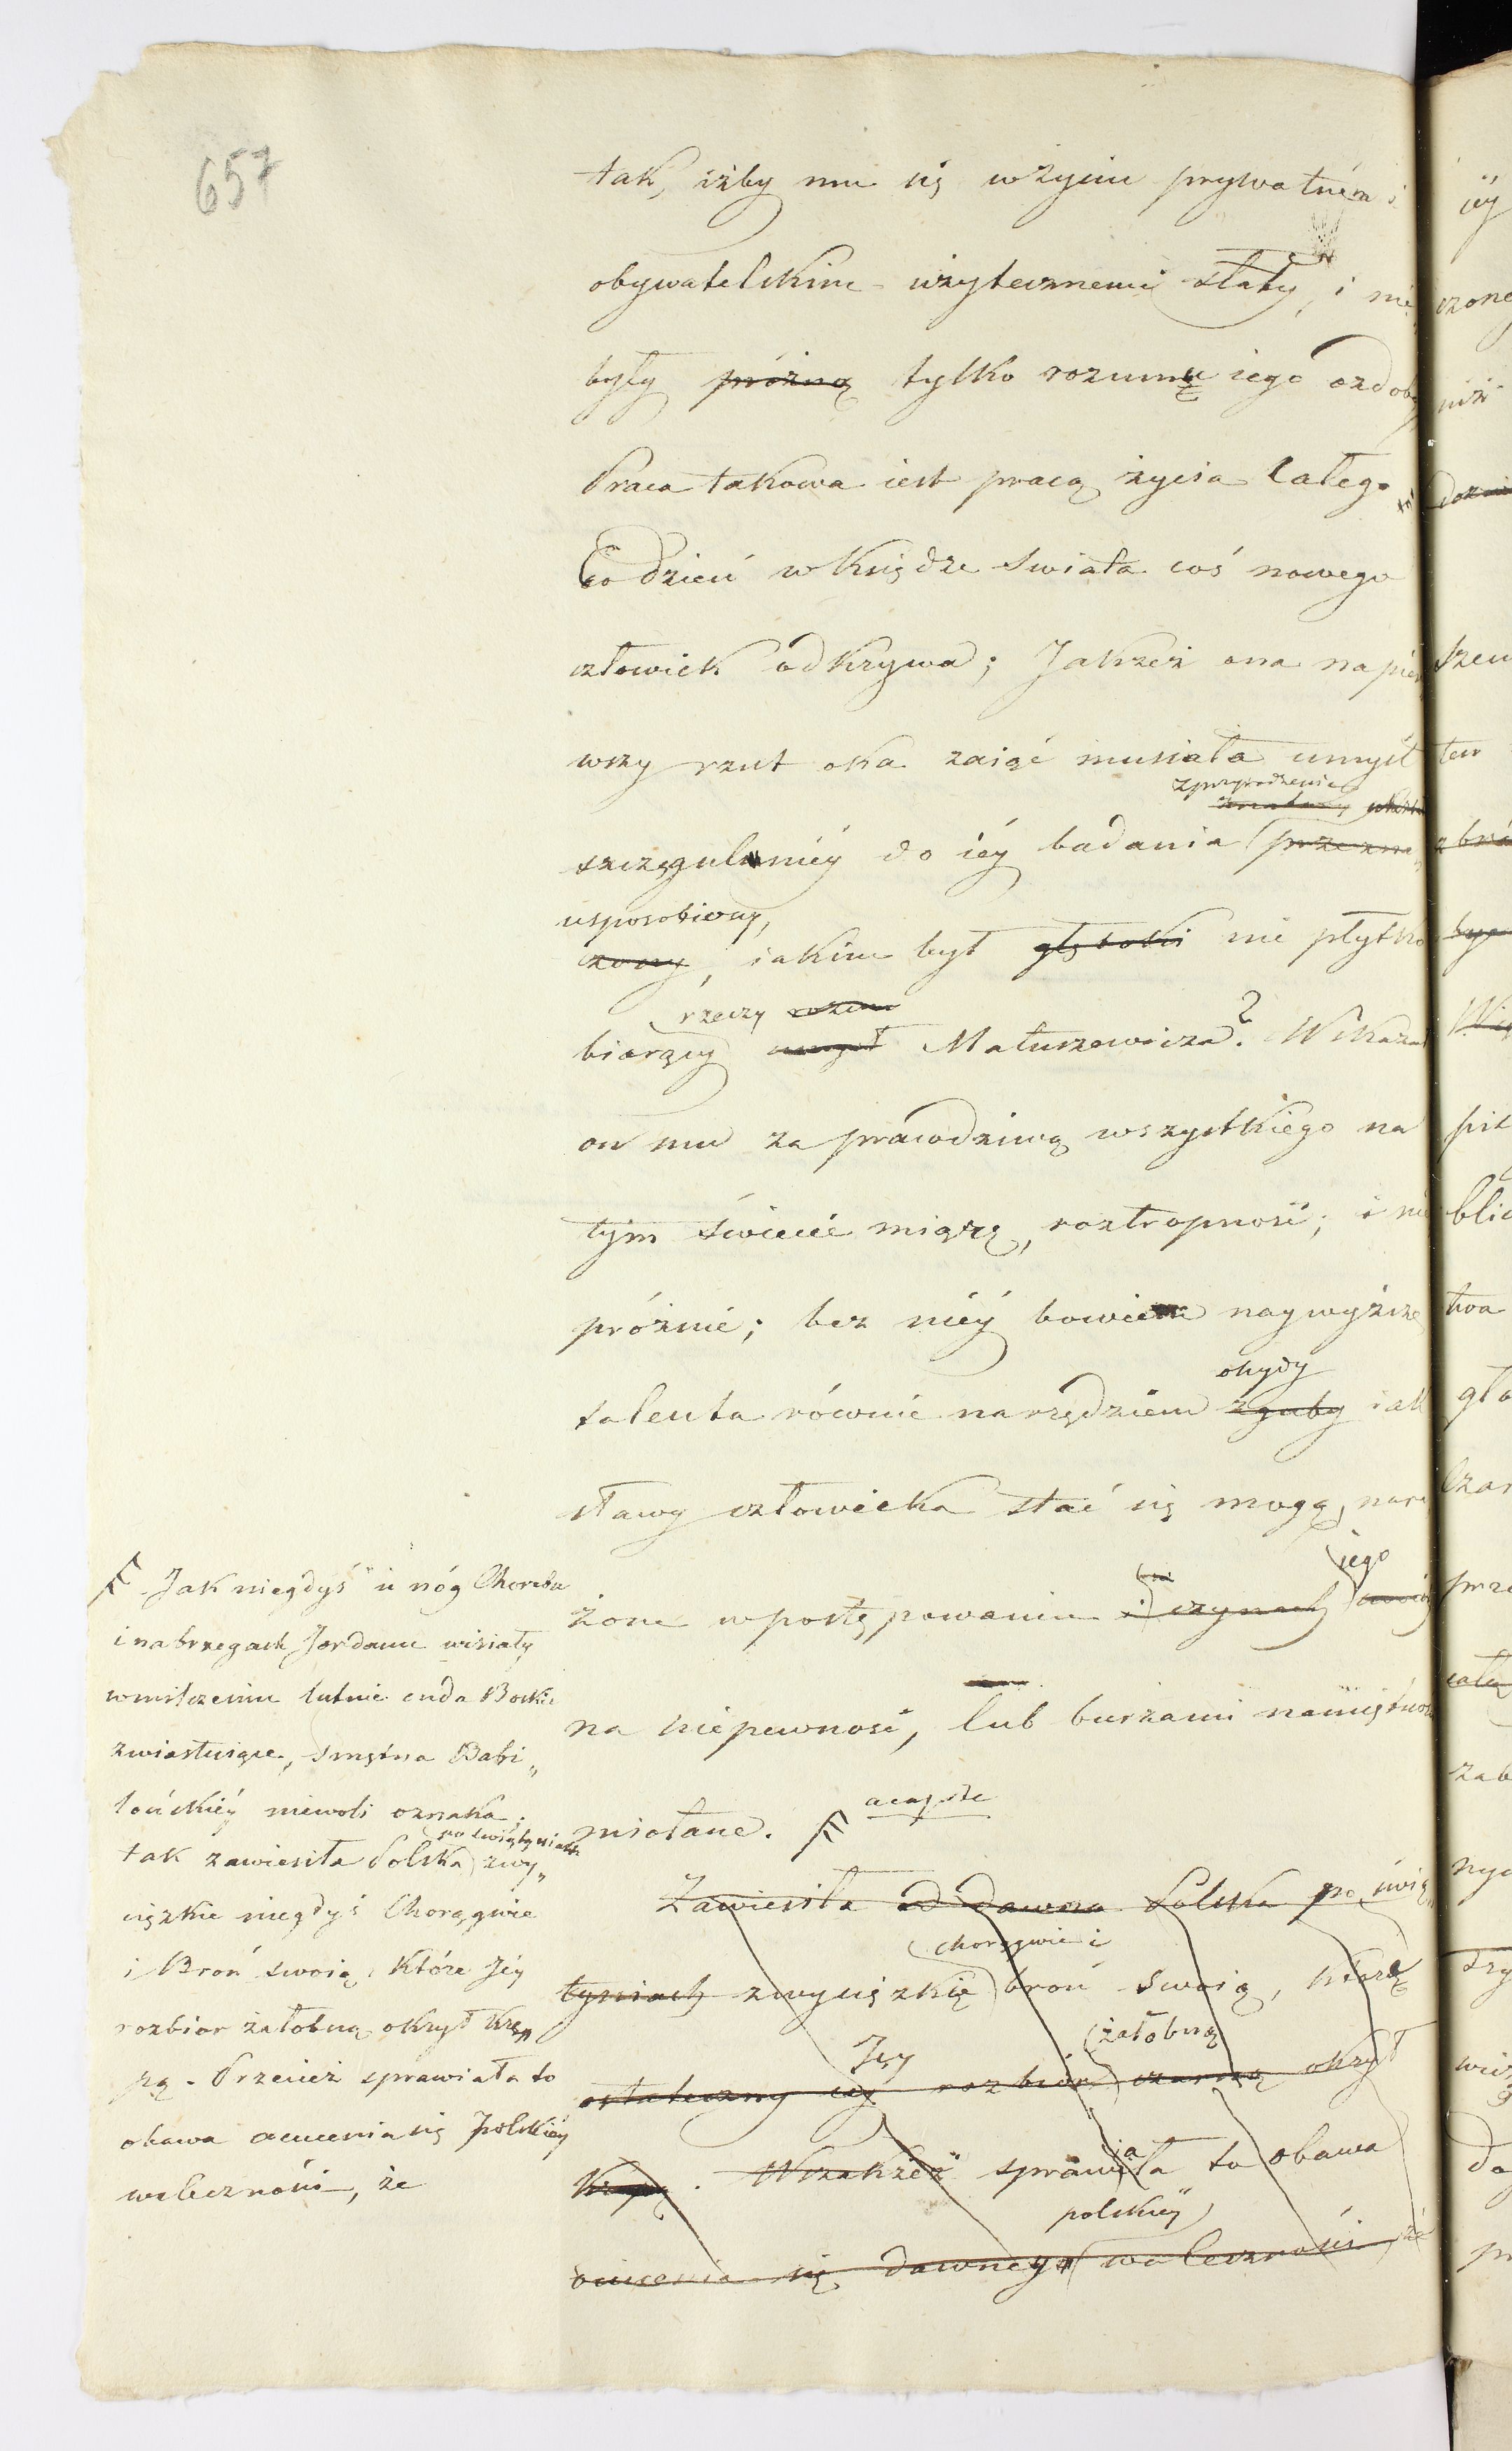 657
tak, iżby mu się w życiu prywatném i
obywatelskim użytecznemi stały, i nie
były próżną tylko rozumu iego ozdobą
Praca takowa iest pracą życia całego.
Co dzień w Księdze świata coś nowego
człowiek odkrywa; Jakżeż ona na pier
wszy rzut oka zaiąć musiała umysł
z przyrodzenia
szczegulniéy do iéy badania przezna
usposobiony,
czony, iakim był głęboki nie płytko
rzeczy
biorący umysł Matuszewicza? Wskazał
on mu za prawdziwą wszystkiego na
tym świecie miarę, roztropność; i nie
próżnie; bez niéy bowiem naywyższe
ohydy
talenta równie narzędziem zguby iak
sławy człowieka stać się mogą, nara
iego
żone w postępowaniu i czynach swoich
na niepewność, lub burzami namiętności
miotane. a capite
Zawiesiła od dawna Polska po świą
chorągwie i
tyniach zwycięzkię broń swoią, którą
Jéy żałobną
ostateczny iéy rozbiór czarną okrył
krepą. Wszakżeż sprawiała to obawa
polskiéy
ocucenia się dawney waleczności, że
Jak niegdyś u nóg Choreba
i na brzegach Jordanu wisiały
w milczeniu lutnie cuda Boskie
zwiastuiące, smętna Babi„
lońskiéy niewoli oznaka;
po świątyniach
tak zawiesiła Polska zwy„
cięzkie niegdyś Chorągwie
i Broń swoią, które Jéy
rozbior żałobną okrył kre„
pą. Przecież sprawiała to
obawa ocucenia się Polskiéy
waleczności, że